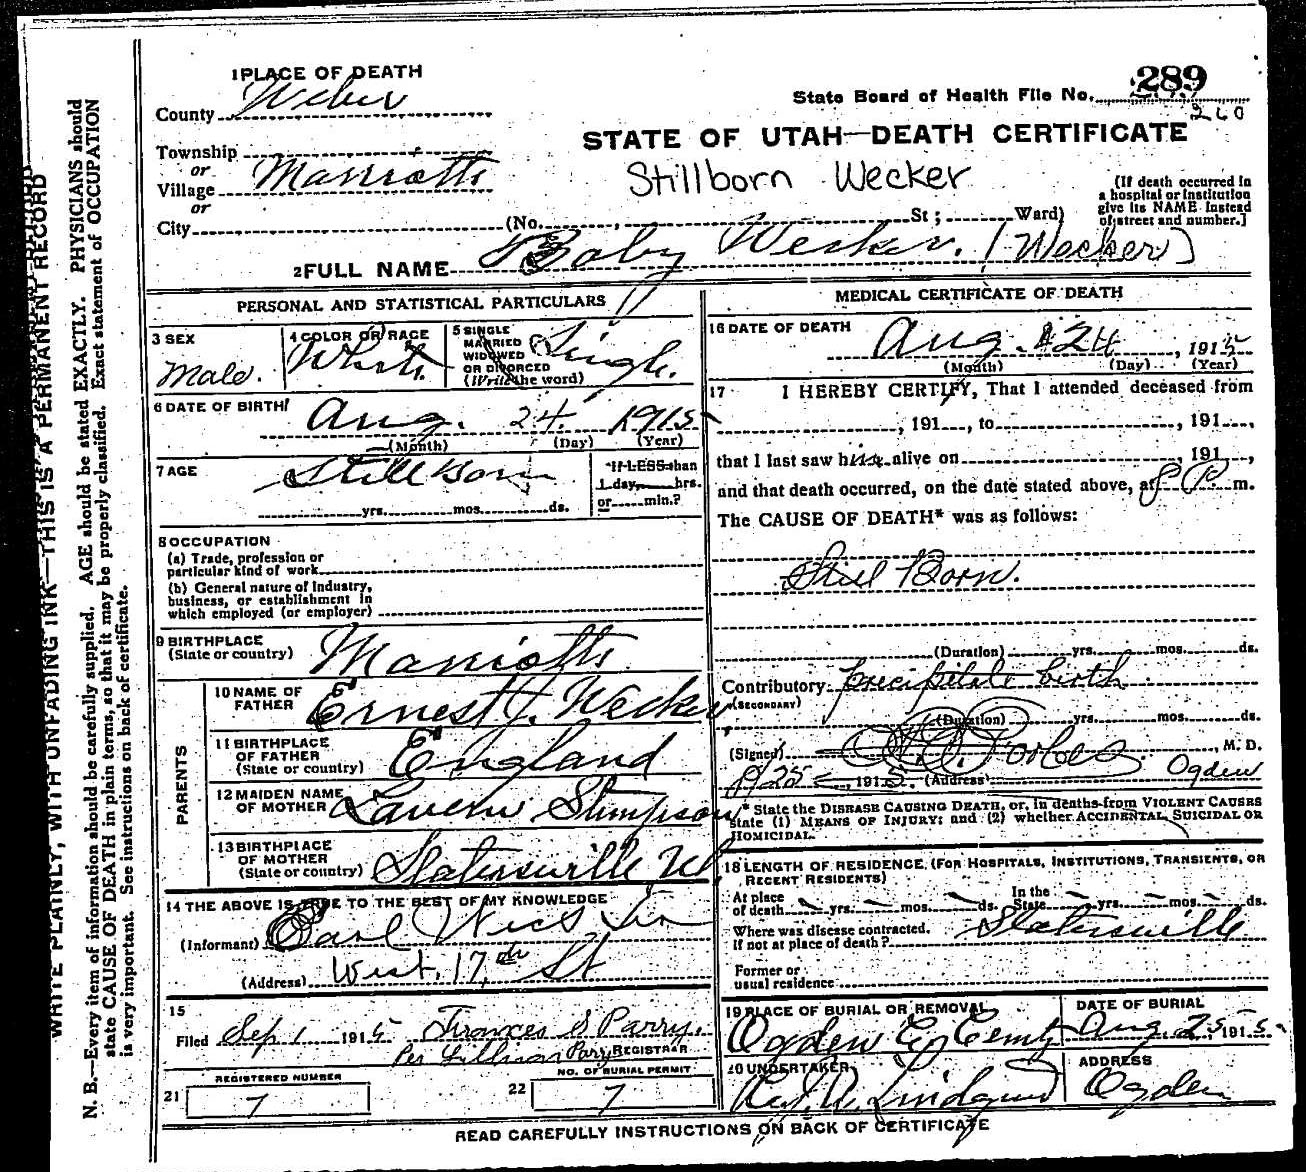 WRITE PLAINLY, WITH UNFADING INK—THIS IS A PERMANENT RECORD
N. B.—Every item of information should be carefully supplied. AGE should be stated EXACTLY. PHYSICIANS should
state CAUSE OF DEATH in plain terms, so that it may be properly classified. Exact statement of OCCUPATION
is very important. See instructions on back of certificate.
1 PLACE OF DEATH
County Weber
State Board of Health File No. 289
260
STATE OF UTAH—DEATH CERTIFICATE
Township
or
Village Marriotts
Stillborn Wecker
(If death occurred in
a hospital or institution
give its NAME instead
of street and number.]
or
City (No. St; Ward)
2 FULL NAME Baby Wesker. [Wecker]
PERSONAL AND STATISTICAL PARTICULARS
3 SEX
Male.
4 COLOR OR RACE
White.
5 SINGLE
MARRIED
WIDOWED
OR DIVORCED
(Write the word)
Single.
6 DATE OF BIRTH
Aug. 24. 1915
(Month) (Day) (Year)
7 AGE
Still Born
yrs. mos. ds.
If LESS than
1 day, hrs.
or min.?
8 OCCUPATION
(a) Trade, profession or
particular kind of work
(b) General nature of Industry,
business, or establishment in
which employed (or employer)
9 BIRTHPLACE
(State or country)
Marriotts
PARENTS
10 NAME OF
FATHER
Ernest J. Wecker
11 BIRTHPLACE
OF FATHER
(State or country)
England
12 MAIDEN NAME
OF MOTHER
Lavern Stimpson
13 BIRTHPLACE
OF MOTHER
(State or country)
Slatersville Ut
14 THE ABOVE IS TRUE TO THE BEST OF MY KNOWLEDGE
(Informant) Carl
(Address) West. 17th St
15
Filed Sep 1 1915 Frances S Parry.
Per Parry REGISTRAR
REGISTERED NUMBER
21 7
NO. OF BURIAL PERMIT
22 7
MEDICAL CERTIFICATE OF DEATH
16 DATE OF DEATH
Aug. 24, 1915
(Month) (Day) (Year)
17 I HEREBY CERTIFY, That I attended deceased from
, 191 , to , 191 ,
that I last saw him alive on , 191 ,
and that death occurred, on the date stated above, at 8 P. m.
The CAUSE OF DEATH* was as follows:
Still Born.
(Duration) yrs. mos. ds.
Contributory precipitate birth
(SECONDARY)
(Duration) yrs. mos. ds.
(Signed) Forbes. , M. D.
8/25 , 1915. (Address) Ogden
* State the DISEASE CAUSING DEATH, or, in deaths from VIOLENT CAUSES
state (1) MEANS OF INJURY; and (2) whether ACCIDENTAL, SUICIDAL OR
HOMICIDAL.
18 LENGTH OF RESIDENCE, (FOR HOSPITALS, INSTITUTIONS, TRANSIENTS, OR
RECENT RESIDENTS)
At place
of death yrs. mos. ds.
In the
State yrs. mos. ds.
Where was disease contracted.
if not at place of death? Slatersville
Former or
usual residence
19 PLACE OF BURIAL OR REMOVAL
Ogden Cy Cemty
DATE OF BURIAL
Aug 25, 1915
20 UNDERTAKER
Lindquist
ADDRESS
Ogden
READ CAREFULLY INSTRUCTIONS ON BACK OF CERTIFICATE